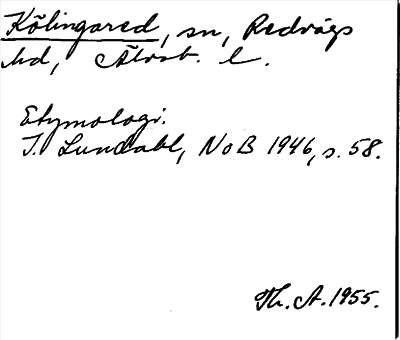 Kölingared, sn, Redvägs
hd, Älvsb. l.
Etymologi.
I. Lundahl, NoB 1946, s. 58.
Th. A. 1955.